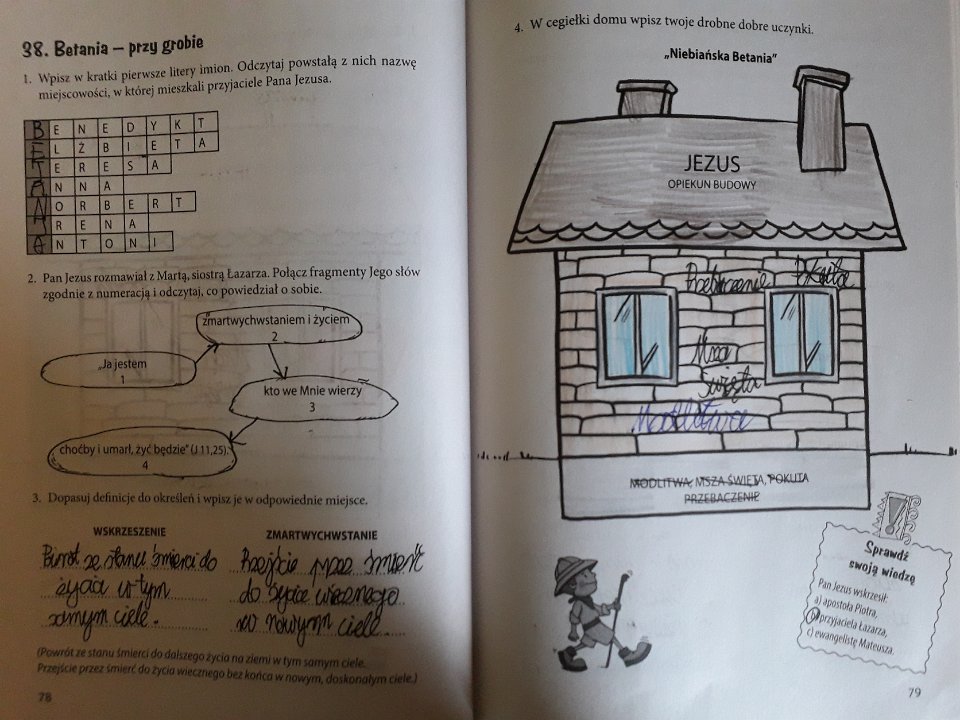 38. Betania – przy grobie
1. Wpisz w kratki pierwsze litery imion. Odczytaj powstałą z nich nazwę
miejscowości, w której mieszkali przyjaciele Pana Jezusa.
B E N E D Y K T
E L Ż B I E T A
T E R E S A
A N N A
N O R B E R T
I R E N A
A N T O N I
2. Pan Jezus rozmawiał z Martą, siostrą Łazarza. Połącz fragmenty Jego słów
zgodnie z numeracją i odczytaj, co powiedział o sobie.
zmartwychwstaniem i życiem
2
„Ja jestem
1
kto we Mnie wierzy
3
choćby i umarł, żyć będzie" (J 11,25).
4
3. Dopasuj definicje do określeń i wpisz je w odpowiednie miejsce.
WSKRZESZENIE
ze stanu śmierci do
życia w tym
samym ciele.
ZMARTWYCHWSTANIE
Przejście przez śmierć
do życia wiecznego
w nowym ciele.
(Powrót ze stanu śmierci do dalszego życia na ziemi w tym samym ciele.
Przejście przez śmierć do życia wiecznego bez końca w nowym, doskonałym ciele.)
78
4. W cegiełki domu wpisz twoje drobne dobre uczynki.
„Niebiańska Betania"
JEZUS
OPIEKUN BUDOWY
Przebaczenie Pokuta
Msza
Święta
Modlitwa
MODLITWA, MSZA ŚWIĘTA, POKUTA
PRZEBACZENIE
Sprawdź
swoją wiedzę
Pan Jezus wskrzesił:
a) apostoła Piotra,
b) przyjaciela Łazarza,
c) ewangelistę Mateusza.
79